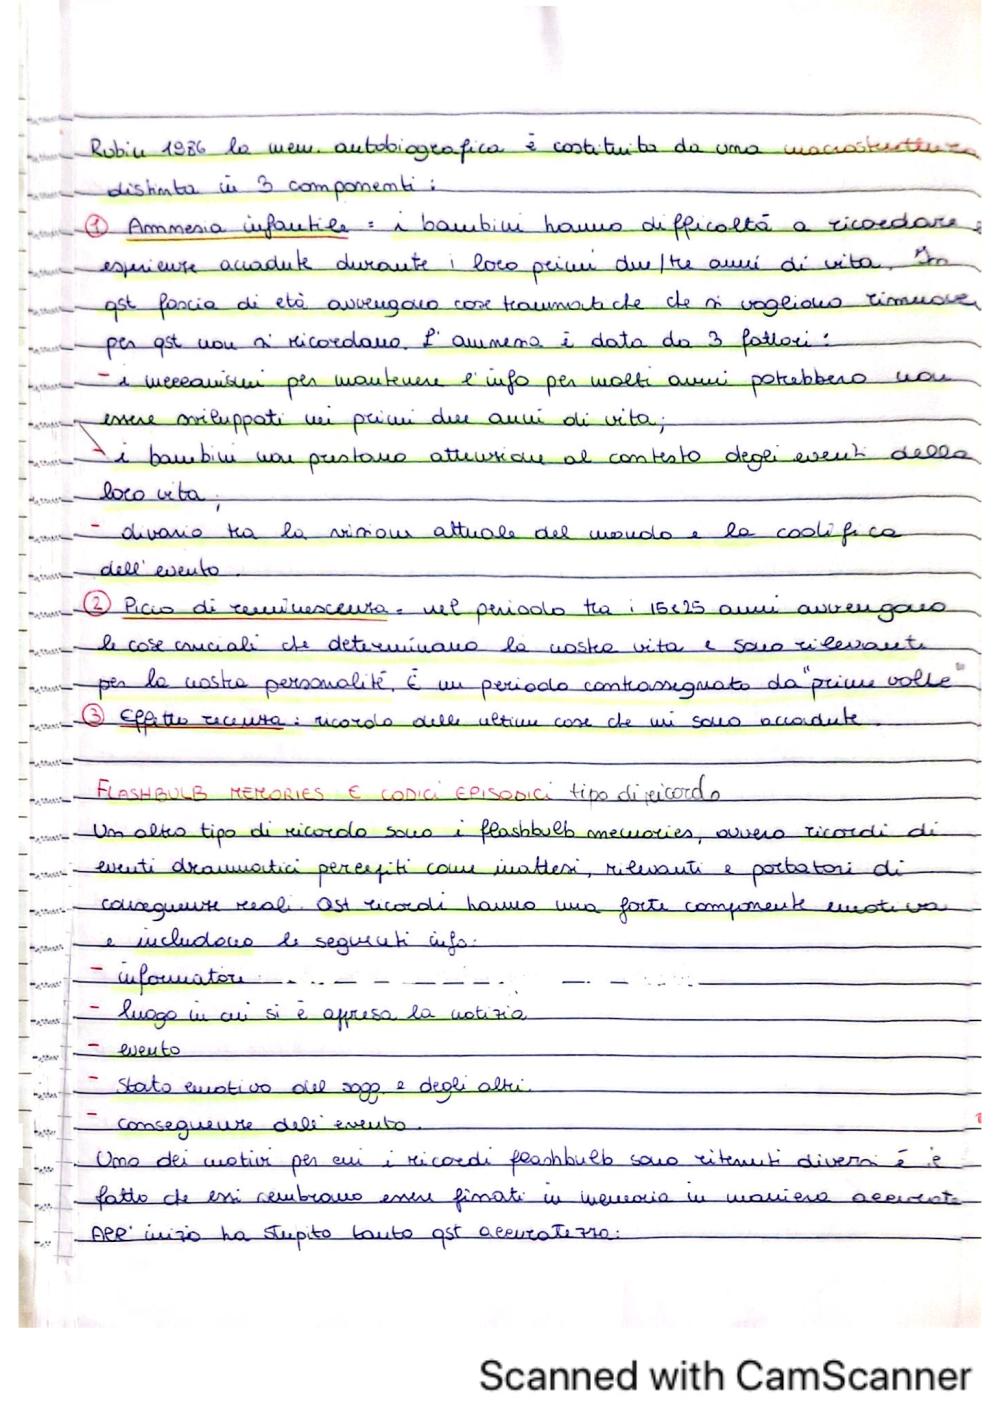 Rubin 1986 la mem. autobiografica è costituita da una macrostruttura
distinta in 3 componenti:
① Ammesia infantile = i bambini hanno difficoltà a ricordare
esperienze accadute durante i loro primi due/tre anni di vita. In
qst fascia di età avvengono cose traumatiche che si vogliono rimuovere
per qst non si ricordano. L'amnesia è data da 3 fattori:
- i meccanismi per mantenere l'info per molti anni potrebbero non
essere sviluppati nei primi due anni di vita;
- i bambini non prestano attenzione al contesto degli eventi della
loro vita;
- divario tra la visione attuale del mondo e la codifica
dell'evento.
② Picco di reminescenza = nel periodo tra i 15e25 anni avvengono
le cose cruciali che determinano la nostra vita e sono rilevanti
per la nostra personalité. È un periodo contrassegnato da "prime volte"
③ Effetto recenza: ricordo delle ultime cose che mi sono accadute.
FLASHBULB MEMORIES E CODICI EPISODICI tipo di ricordo
Un altro tipo di ricordo sono i flashbulb memories, ovvero ricordi di
eventi drammatici percepiti come inattesi, rilevanti e portatori di
conseguenze reali. Qst ricordi hanno una forte componente emotiva
e includono le seguenti info:
- informatore
- luogo in cui si è appresa la notizia
- evento
- stato emotivo del sogg. e degli altri.
- conseguenze dell'evento.
Uno dei motivi per cui i ricordi flashbulb sono ritenuti diversi è il
fatto che essi sembrano essere fissati in memoria in maniera accurata
All'inizio ha stupito tanto qst accuratezza:
Scanned with CamScanner